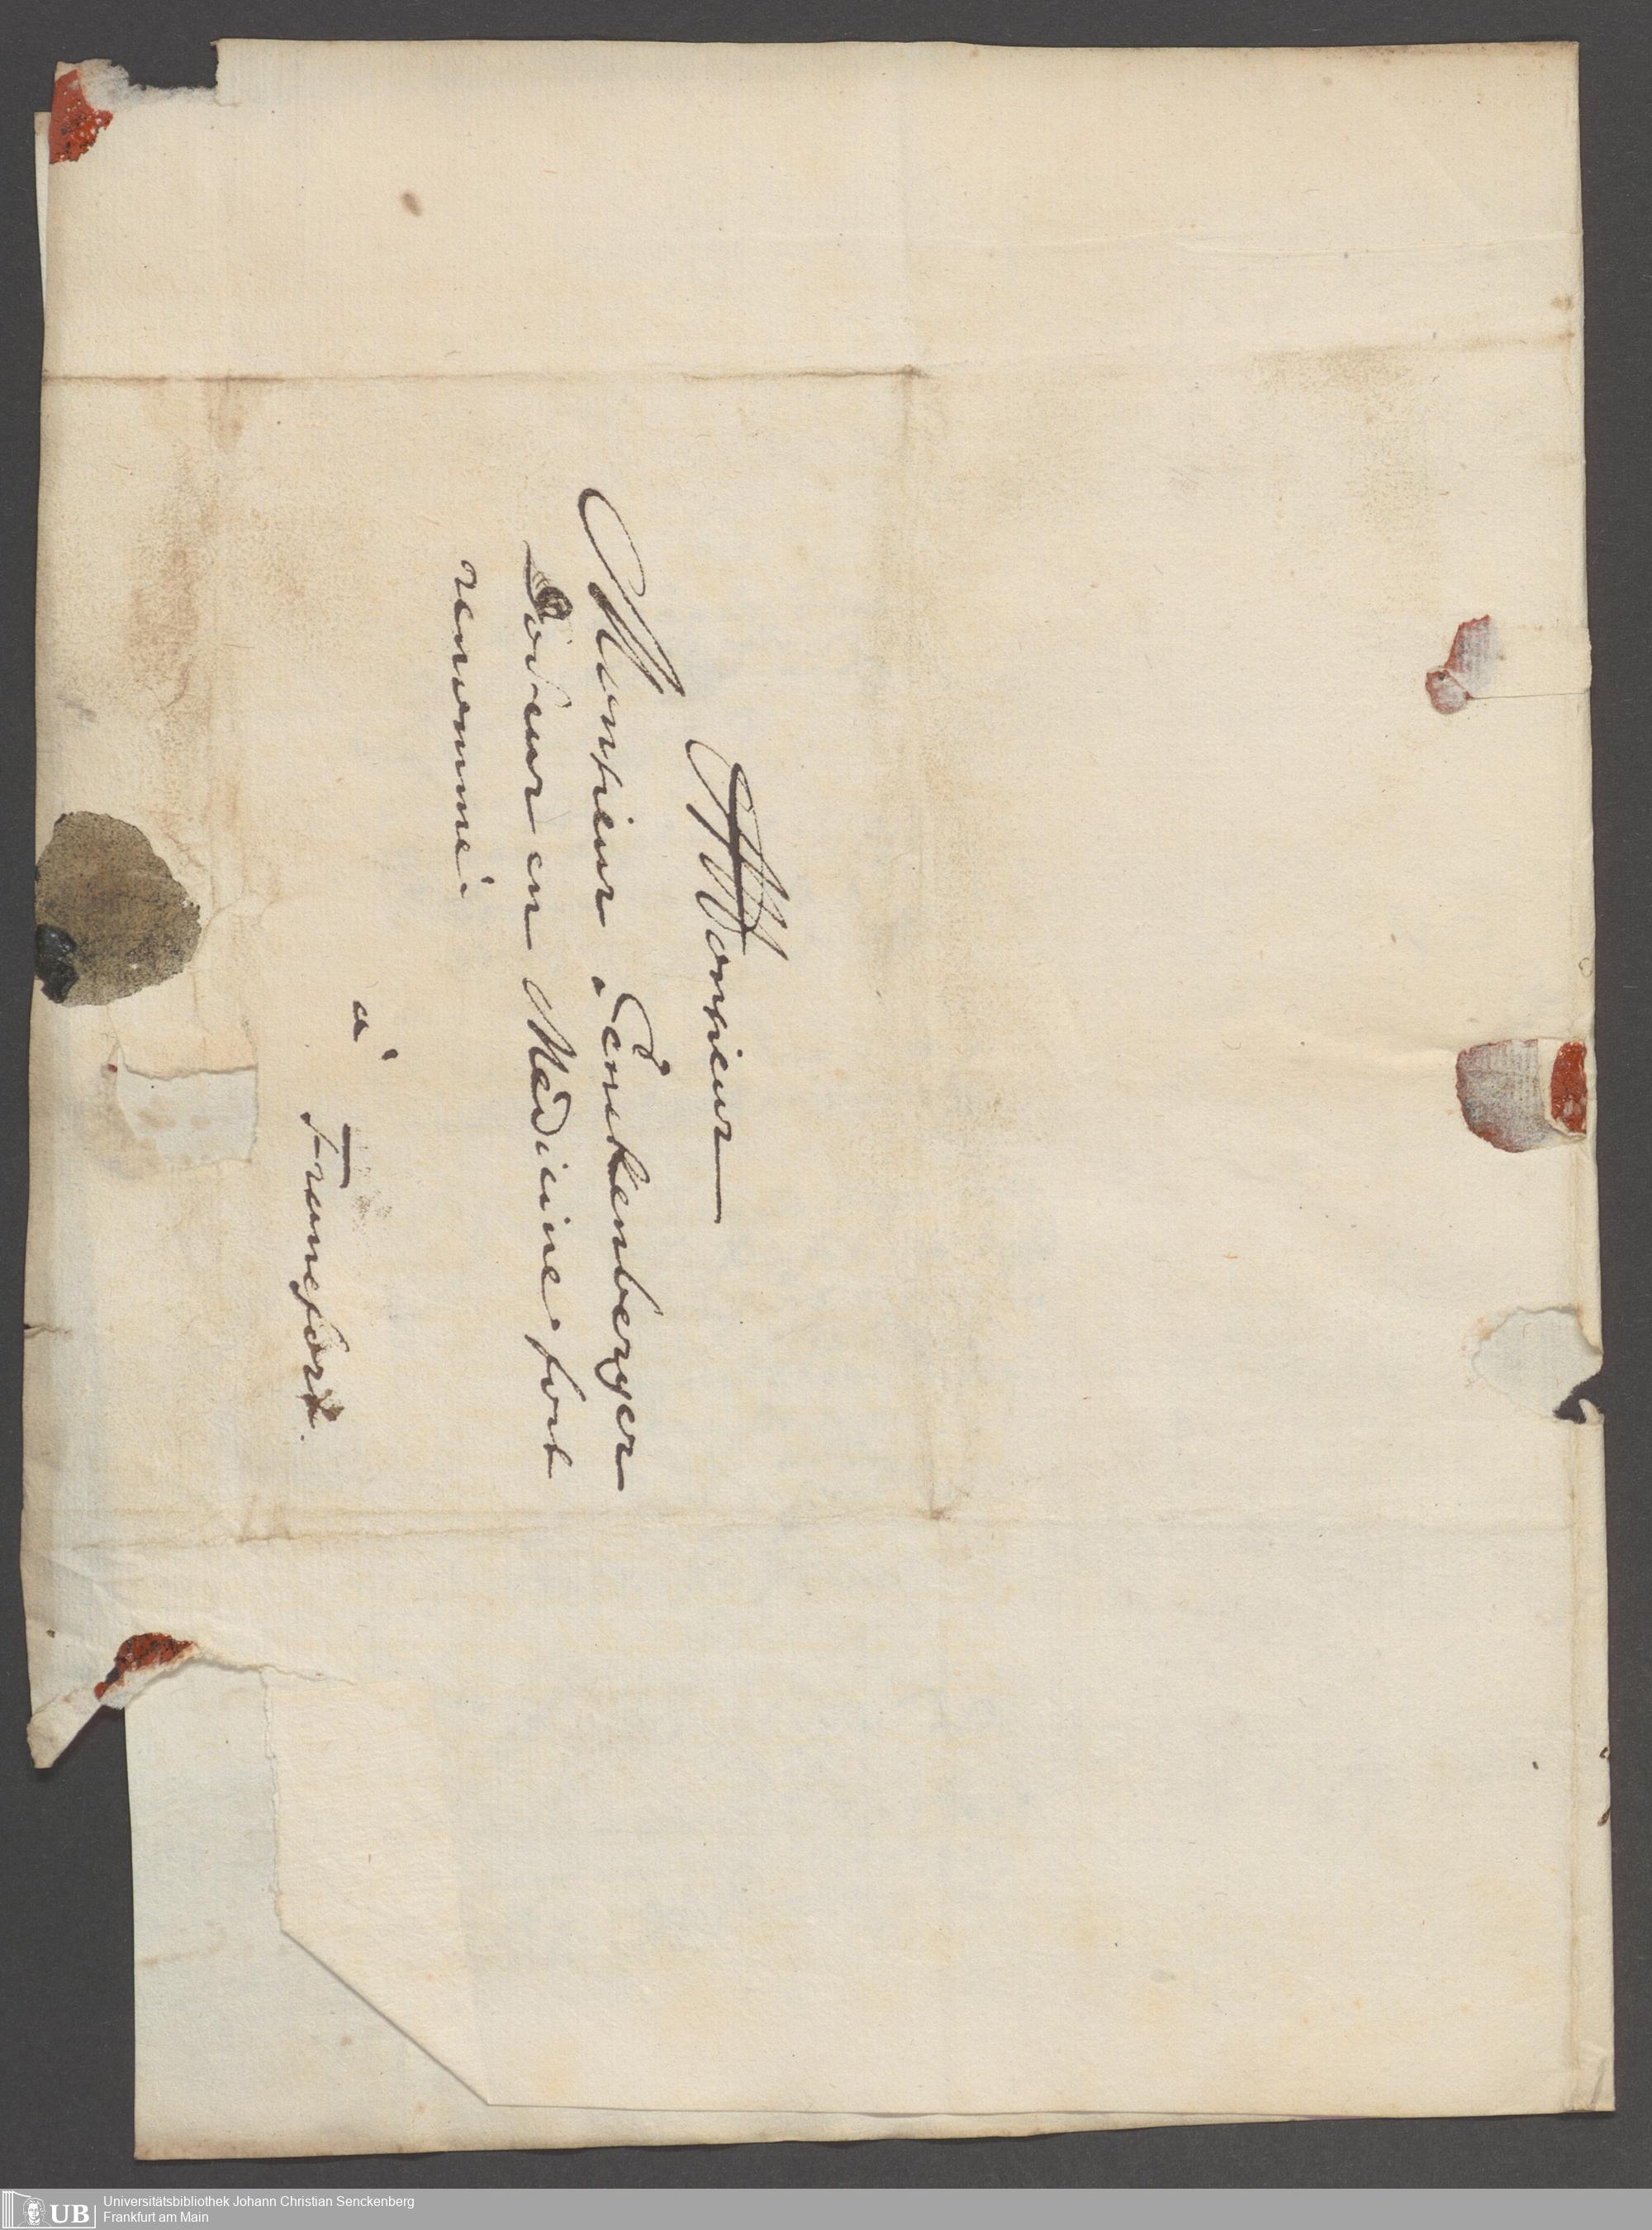 Monsieur
Monsieur Senckenberger
Docteur en Medicine fort
renommé.
à
Francfort.
Universitätsbibliothek Johann Christian Senckenberg
Frankfurt am Main
UB